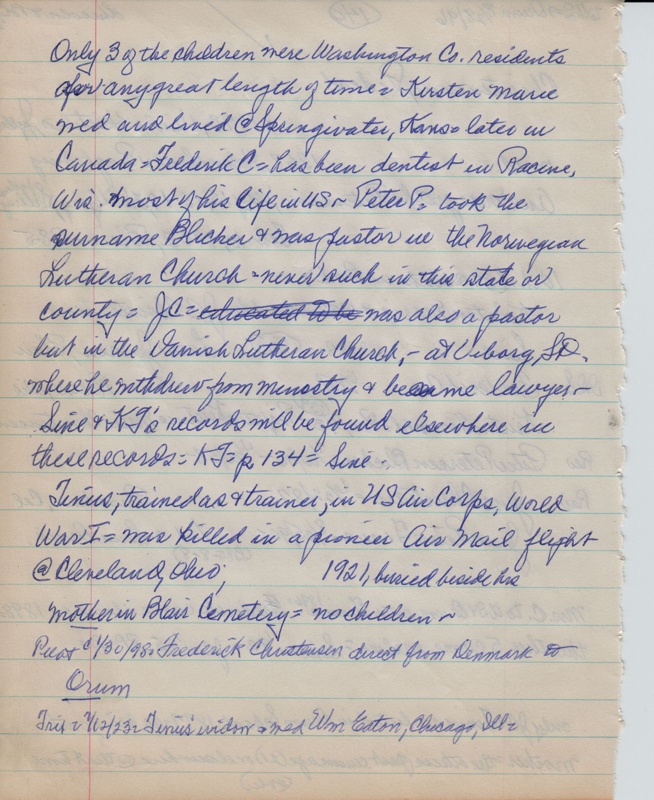 Only 3 of the children were Washington Co. residents
for any great length of time = Kirsten Marie
wed and lived @ Springwater, Kans = later in
Canada = Frederik C = has been dentist in Racine,
Wis. most of his life in US ~ Peter P = took the
surname Blicher & was pastor in the Norwegian
Lutheran Church - never such in this state or
county = JC = educated to be was also a pastor
but in the Danish Lutheran Church, - at Viborg, SD.
where he withdrew from ministry & became lawyer -
Sine & KF's records will be found elsewhere in
these records = KF = p 134 = Sine -
Tinius, trained as & trainer, in US Air Corps, World
War I = was killed in a pioneer Air Mail flight
@ Cleveland, Ohio, 1921, buried beside his
mother in Blair Cemetery = no children ~
Pilot 1/30/98 = Frederick Christensen direct from Denmark to
Orum
Trib = 7/12/23 = Tinius' widow = wed Wm Eaton, Chicago, Ill =